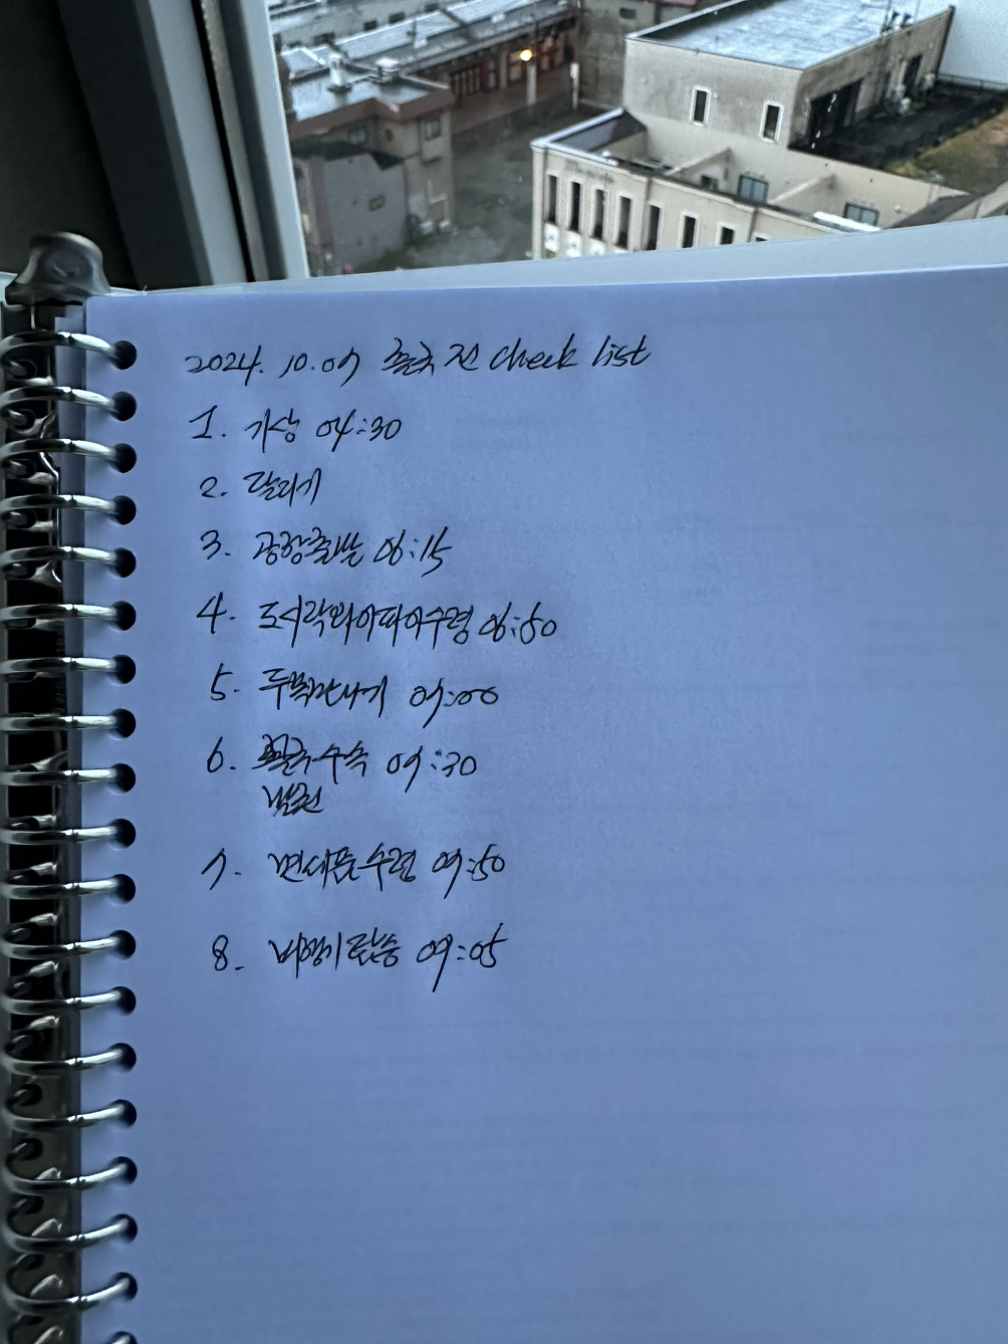 2024. 10. 07 출국 전 check list
1. 기상 04:30
2. 달리기
3. 공항출발 06:15
4. 도시락와이파이수령 06:50
5. 07:00
6. 출국수속 07:30
발권
7. 면세품수령 07:50
8. 비행기탑승 09:05